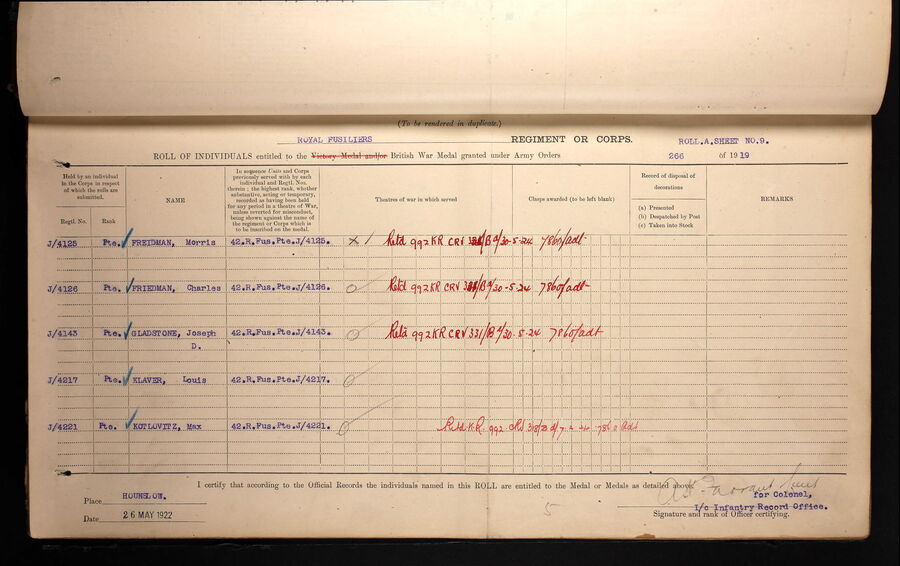 (To be rendered in duplicate.)
ROYAL FUSILIERS REGIMENT OR CORPS. ROLL.A.SHEET NO.9.
ROLL OF INDIVIDUALS entitled to the Victory Medal and/or British War Medal granted under Army Orders 266 of 1919
Held by an individual
in the Corps in respect
of which the rolls are
submitted.
Regtl. No. Rank
NAME
In sequence Units and Corps
previously served with by each
individual and Regtl. Nos.
therein; the highest rank, whether
substantive, acting or temporary,
recorded as having been held
for any period in a theatre of War,
unless reverted for misconduct,
being shown against the name of
the regiment or Corps which is
to be inscribed on the medal.
Theatres of war in which served
Clasps awarded (to be left blank)
Record of disposal of
decorations
(a) Presented
(b) Despatched by Post
(c) Taken into Stock
REMARKS
J/4125 Pte. FREIDMAN, Morris 42.R.Fus.Pte.J/4125. X 1 Retd 992 KR CRV /B d/30-5-24 7860/adt
J/4126 Pte. FRIEDMAN, Charles 42.R.Fus.Pte.J/4126. O Retd 992 KR CRV /B d/30-5-24 7860/adt
J/4143 Pte. GLADSTONE, Joseph 42.R.Fus.Pte.J/4143. O Retd 992 KR CRV 331/B d/30.5.24 7860/adt
D.
J/4217 Pte. KLAVER, Louis 42.R.Fus.Pte.J/4217. O
J/4221 Pte. KOTLOVITZ, Max 42.R.Fus.Pte.J/4221. O Retd K.R. 992 7860 Adt
I certify that according to the Official Records the individuals named in this ROLL are entitled to the Medal or Medals as detailed above.
Place HOUNSLOW.
for Colonel,
I/c Infantry Record Office.
Date 26 MAY 1922
5
Signature and rank of Officer certifying.